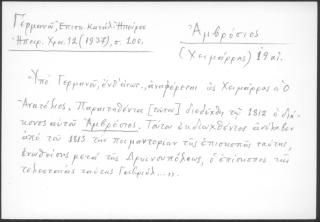 Γερμανοῦ, Ἐπισκ. Κατάλ. Ἠπείρου
Ἠπειρ. Χρον. 12 (1937), σ. 100.
Ἀμβρόσιος
(Χειμάρρας) 19 αἰ.
Ὑπὸ Γερμανοῦ, ἔνθ' ἀνωτ., ἀναφέρεται ὡς Χειμάρρας ὁ
Παραιτηθέντα [τοῦτον] διεδέχθη τῷ 1812 ὁ διά-
κονος αὐτοῦ Ἀμβρόσιος. Τούτου ἐκδιωχθέντος ἀνέλαβεν
ἀπὸ τοῦ 1813 τὴν ποιμαντορίαν τῆς ἐπισκοπῆς ταύτης,
ἑνωθείσης μετὰ τῆς Δρυϊνουπόλεως, ὁ ἐπίσκοπος τῆς
τελευταίας ταύτης Γαβριήλ....